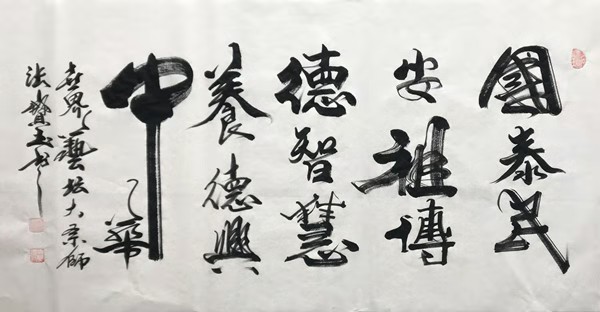 國泰民
安祖傳
德智慧
養德興
中華
世界藝坛大宗师
法